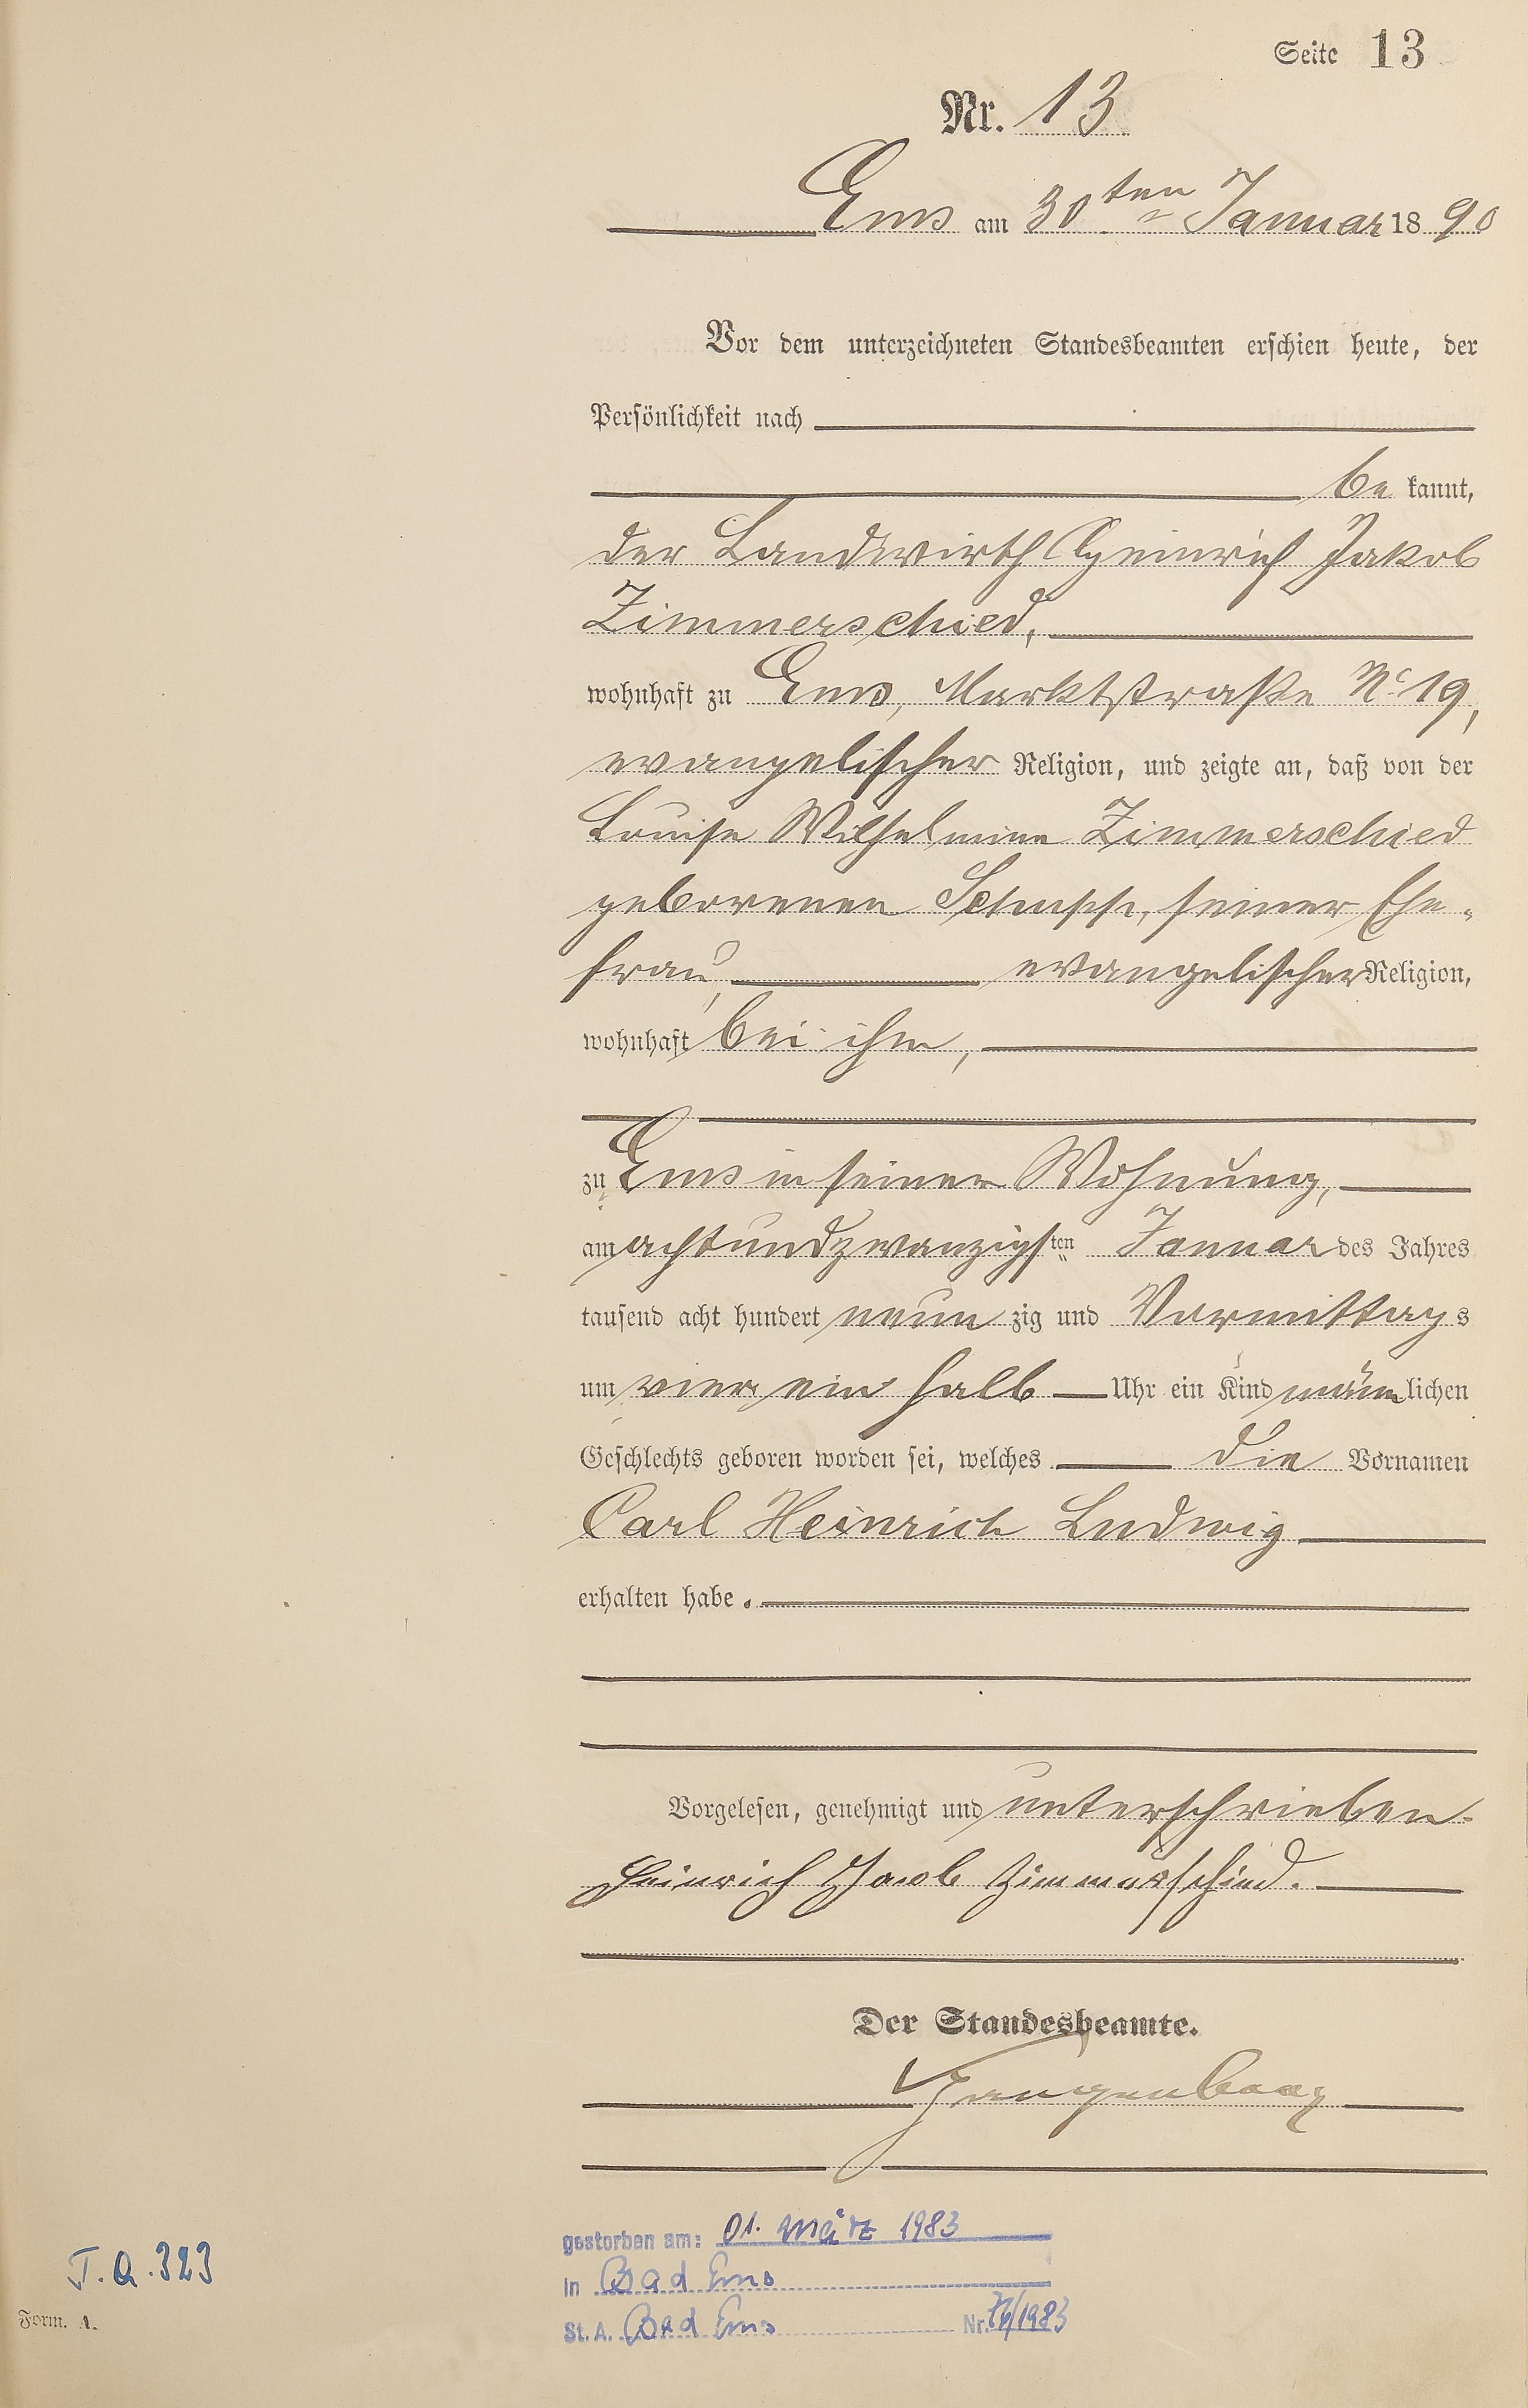 Seite 13
Nr. 13
Ems am 30ten Januar 1890
Vor dem unterzeichneten Standesbeamten erschien heute, der
Persönlichkeit nach
be kannt,
der Landwirth Heinrich Jakob
Zimmerschied,
wohnhaft zu Ems, Marktstraße No 19,
evangelischer Religion, und zeigte an, daß von der
Louise Wilhelmine Zimmerschied
geborenen Schupp, seiner Ehe-
frau, evangelischer Religion,
wohnhaft bei ihm,
zu Ems in seiner Wohnung,
am achtundzwanzigsten Januar des Jahres
tausend acht hundert neun zig und Vormittags
um vier ein halb Uhr ein Kind männlichen
Geschlechts geboren worden sei, welches die Vornamen
Carl Heinrich Ludwig
erhalten habe.
Vorgelesen, genehmigt und unterschrieben.
Heinrich Jacob Zimmerschied.
Der Standesbeamte.
gestorben am: 01. März 1983
in Bad Ems
St. A. Bad Ems Nr. /1983
T.Q.323
Form. A.